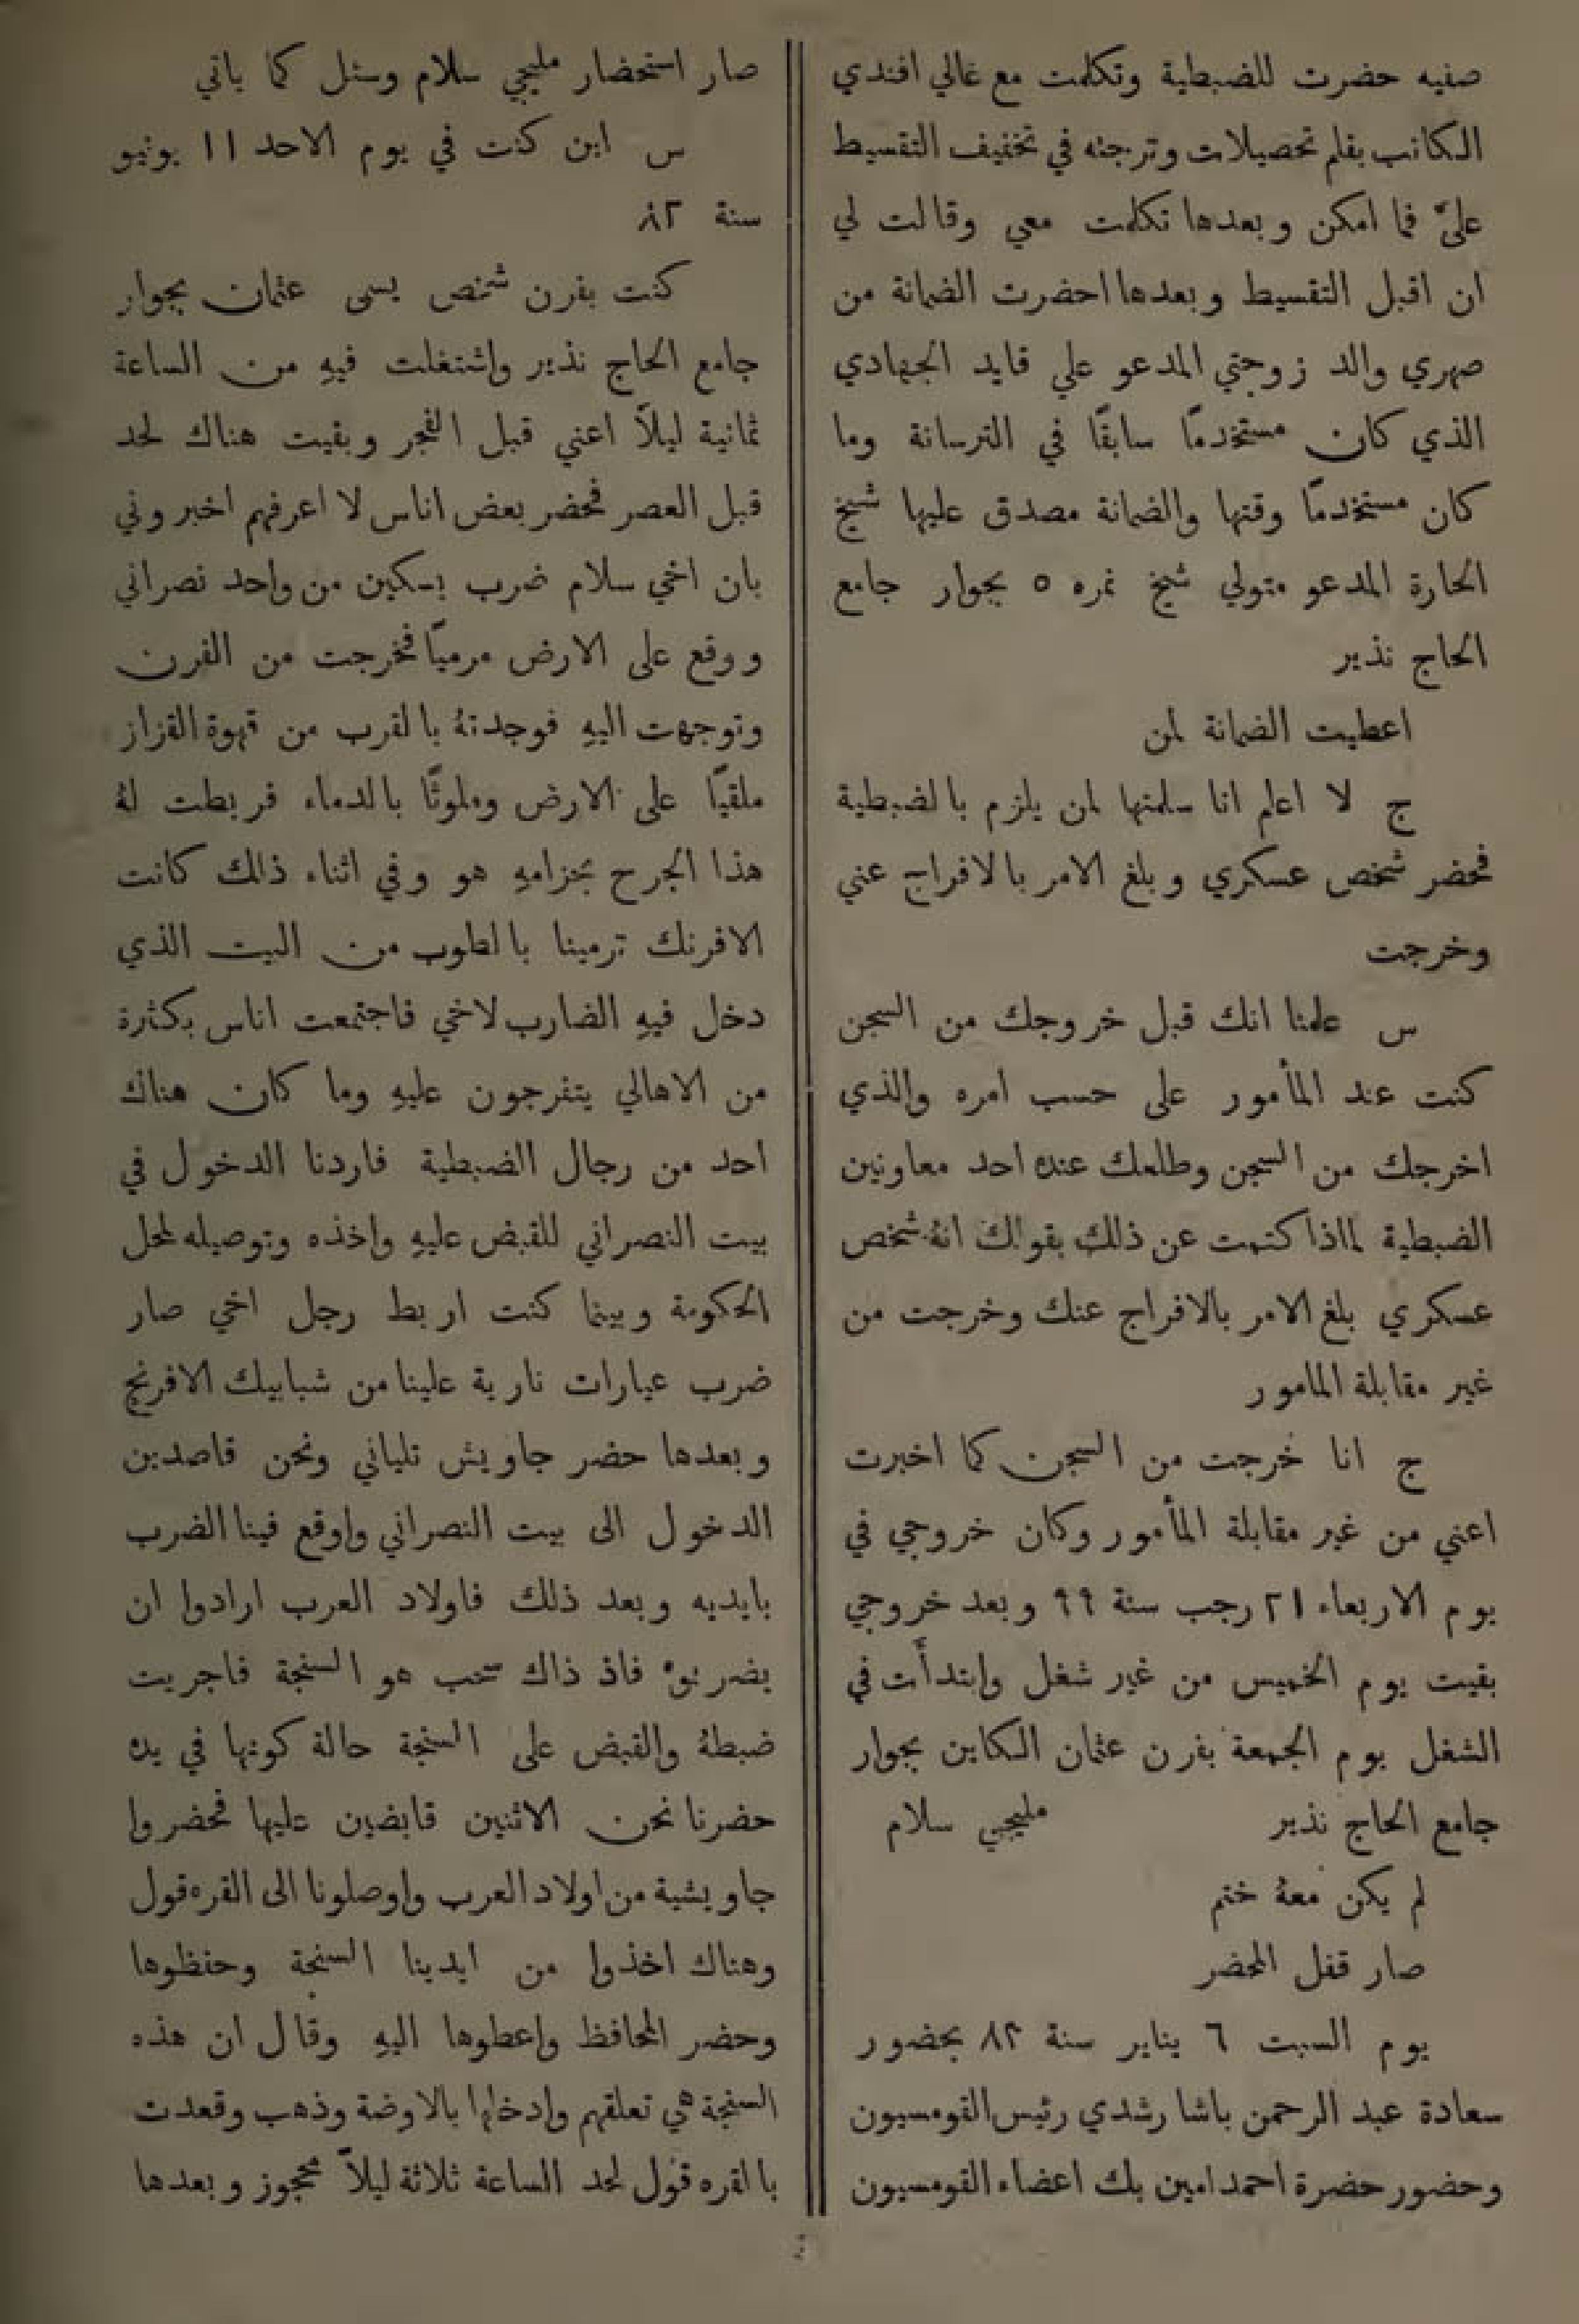 صفيه حضرت للضبطية وتكلمت مع غالي افندي
الكاتب بقلم تحصيلات وترجته في تخفيف التقسيط
عليَّ فما امكن وبعدها تكلمت معي وقالت لي
ان اقبل التقسيط وبعدها احضرت الضمانة من
صهري والد زوجتي المدعو علي قايد الجهادي
الذي كان مستخدمًا سابقًا في الترسانة وما
كان مستخدمًا وقتها والضمانة مصدق عليها شيخ
الحارة المدعو متولي شيخ نمره ٥ بجوار جامع
الحاج نذير
اعطيت الضمانة لمن
ج لا اعلم انا سلمتها لمن يلزم بالضبطية
فحضر شخص عسكري وبلغ الامر بالافراج عني
وخرجت
س علمنا انك قبل خروجك من السجن
كنت عند المأمور على حسب امره والذي
اخرجك من السجن وطلعك عنده احد معاونين
الضبطية لماذا كتمت عن ذلك بقولك انهُ شخص
عسكري بلغ الامر بالافراج عنك وخرجت من
غير مقابلة المامور
ج انا خرجت من السجن كما اخبرت
اعني من غير مقابلة المأمور وكان خروجي في
يوم الاربعاء ٢١ رجب سنة ٩٩ وبعد خروجي
بقيت يوم الخميس من غير شغل وابتدأت في
الشغل يوم الجمعة بفرن عثمان الكاين بجوار
جامع الحاج نذير مليجي سلام
لم يكن معهُ ختم
صار قفل المحضر
يوم السبت ٦ يناير سنة ٨٢ بحضور
سعادة عبد الرحمن باشا رشدي رئيس القومسيون
وحضور حضرة احمد امين بك اعضاء القومسيون
صار استحضار مليجي سلام وسئل كما ياتي
س اين كنت في يوم الاحد ١١ يونيو
سنة ٨٢
كنت بفرن شخص يسمى عثمان بجوار
جامع الحاج نذير واشتغلت فيهِ من الساعة
ثمانية ليلاً اعني قبل الفجر وبقيت هناك لحد
قبل العصر فحضر بعض اناس لا اعرفهم اخبروني
بان اخي سلام ضرب بسكين من واحد نصراني
ووقع على الارض مرميًا فخرجت من الفرن
وتوجهت اليهِ فوجدتهُ بالقرب من قهوة القزاز
ملقيًا على الارض وملوثًا بالدماء فربطت لهُ
هذا الجرح بحزامهِ هو وفي اثناء ذالك كانت
الافرنك ترمينا بالطوب من البيت الذي
دخل فيهِ الضارب لاخي فاجتمعت اناس بكثرة
من الاهالي يتفرجون عليهِ وما كان هناك
احد من رجال الضبطية فاردنا الدخول في
بيت النصراني للقبض عليهِ واخذه وتوصيله لمحل
الحكومة وبينما كنت اربط رجل اخي صار
ضرب عيارات نارية علينا من شبابيك الافرنج
وبعدها حضر جاويش تلياني ونحن قاصدين
الدخول الى بيت النصراني واوقع فينا الضرب
بايديه وبعد ذلك فاولاد العرب ارادوا ان
يضربوهُ فاذ ذاك سحب هو السنجة فاجريت
ضبطهُ والقبض على السنجة حالة كونها في يده
حضرنا نحن الاثنين قابضين عليها فحضروا
جاويشية من اولاد العرب واوصلونا الى القره قول
وهناك اخذوا من ايدينا السنجة وحفظوها
وحضر المحافظ واعطوها اليهِ وقال ان هذه
السنجة هي تعلقهم وادخلها بالاوضة وذهب وقعدت
بالقره قول لحد الساعة ثلاثة ليلاً محجوز وبعدها